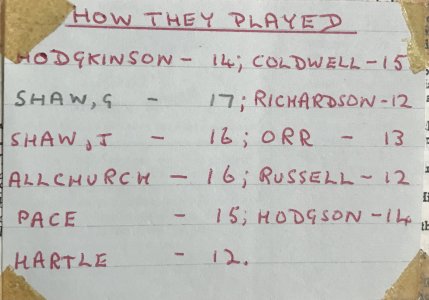 HOW THEY PLAYED
HODGKINSON - 14; COLDWELL - 15
SHAW, G - 17; RICHARDSON - 12
SHAW, J - 16; ORR - 13
ALLCHURCH - 16; RUSSELL - 12
PACE - 15; HODGSON - 14
HARTLE - 12.